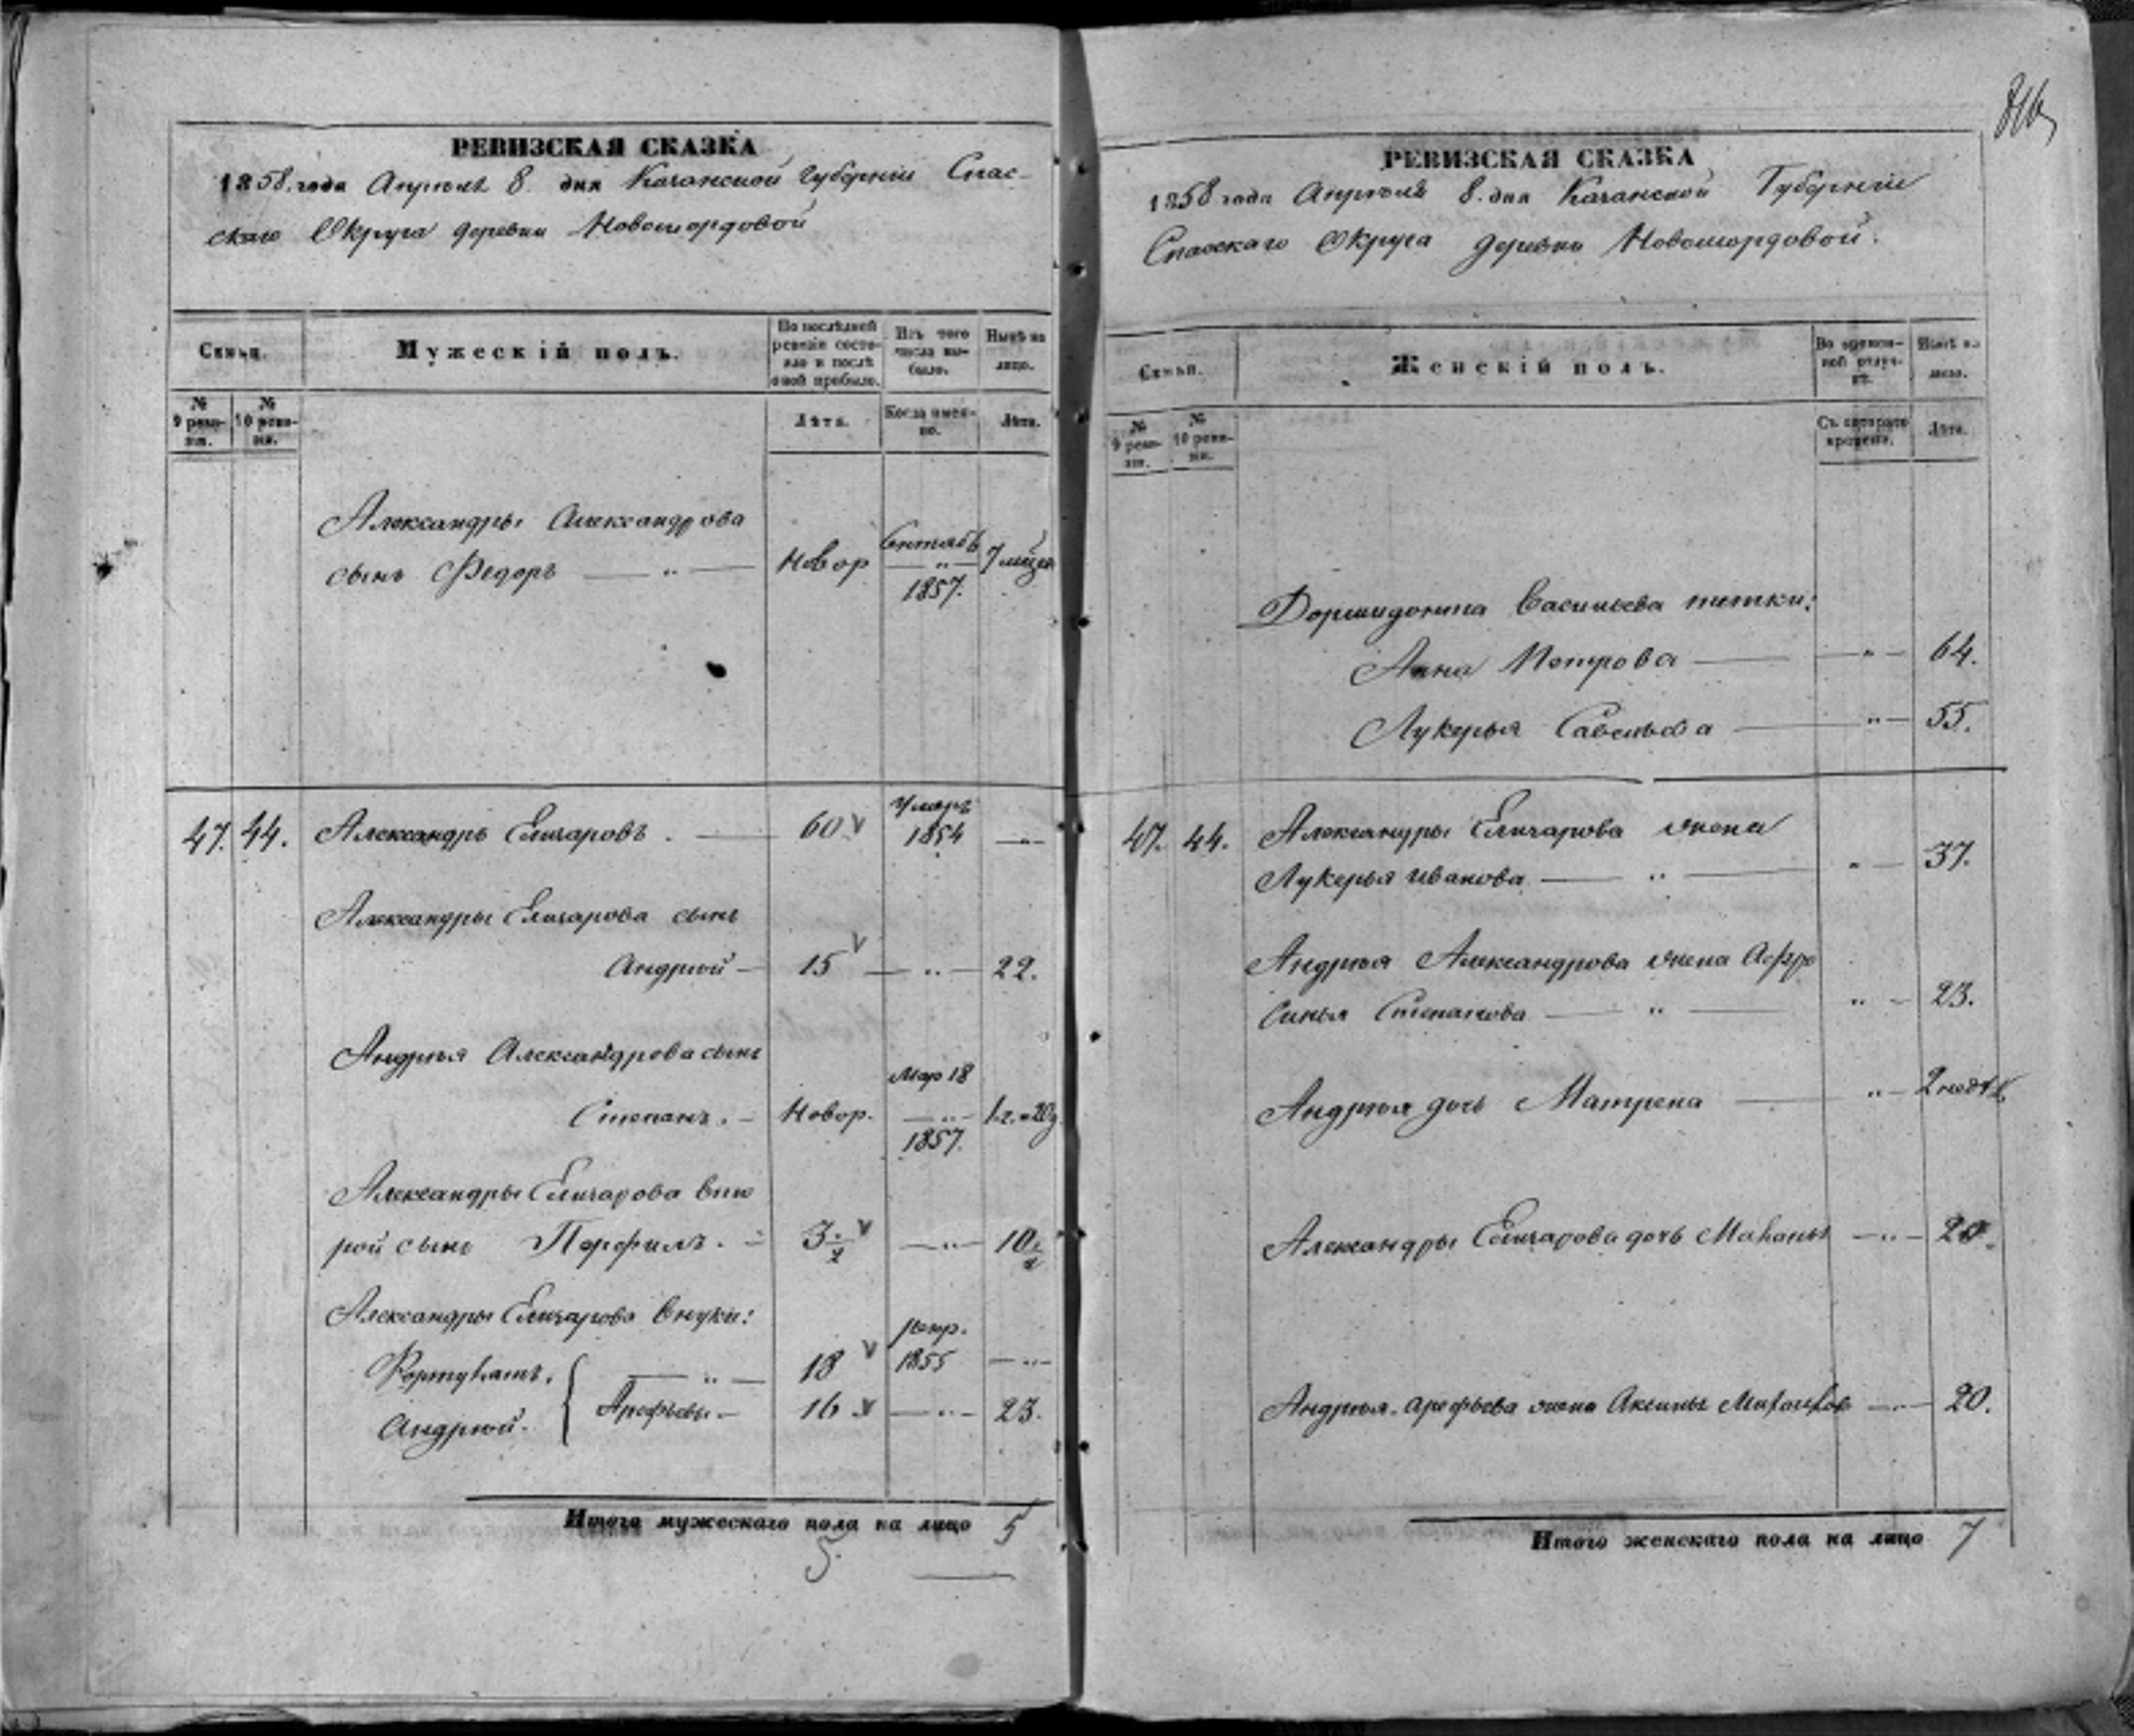 РЕВИЗСКАЯ СКАЗКА
1858 года Апрѣля 8 дня Казанской Губерніи Спас-
скаго Округа деревни Новомордовой
Семьи.
Мужескій полъ.
По послѣдней ревизіи состояло и послѣ оной прибыло.
Изъ того числа выбыло.
Нынѣ на лицо.
№ 9 ревизіи.
№ 10 ревизіи.
Лѣта.
Когда именно.
Лѣта.
Александры Александрова
сынъ Федоръ — " — Новор 1857. 7
47. 44. Александръ Елизаровъ. — 60 Умеръ 1854 — " —
Александры Елизарова сынъ
Андрей — 15 — " — 22.
Андрея Александрова сынъ
Степанъ. — Новор. Мар 18 1857.
Александры Елизарова вто
рой сынъ — " —
Александры Елизарова внуки:
18 1855 — " —
Андрей. Арефьевы — 16 — " — 23.
Итого мужескаго пола на лицо 5
5.
РЕВИЗСКАЯ СКАЗКА
1858 года Апрѣля 8. дня Казанской Губерніи
Спасскаго Округа деревни Новомордовой.
Семьи.
Женскій полъ.
Во временной отлучкѣ.
Нынѣ на лицо.
№ 9 ревизіи.
№ 10 ревизіи.
Съ котораго времени.
Лѣта.
Дормидонта Васильева тетки:
Анна Петрова — " — 64.
Лукерья Савельева — " — 55.
47. 44. Александры Елизарова жена
Лукерья Иванова — " — " — 37.
Андрея Александрова жена Афро
синья Степанова — " — " — 23.
Андрея дочь Матрена — " — 2
Александры Елизарова дочь — " — 20.
Андрея Арефьева жена Аксинья — " — 20.
Итого женскаго пола на лицо 7